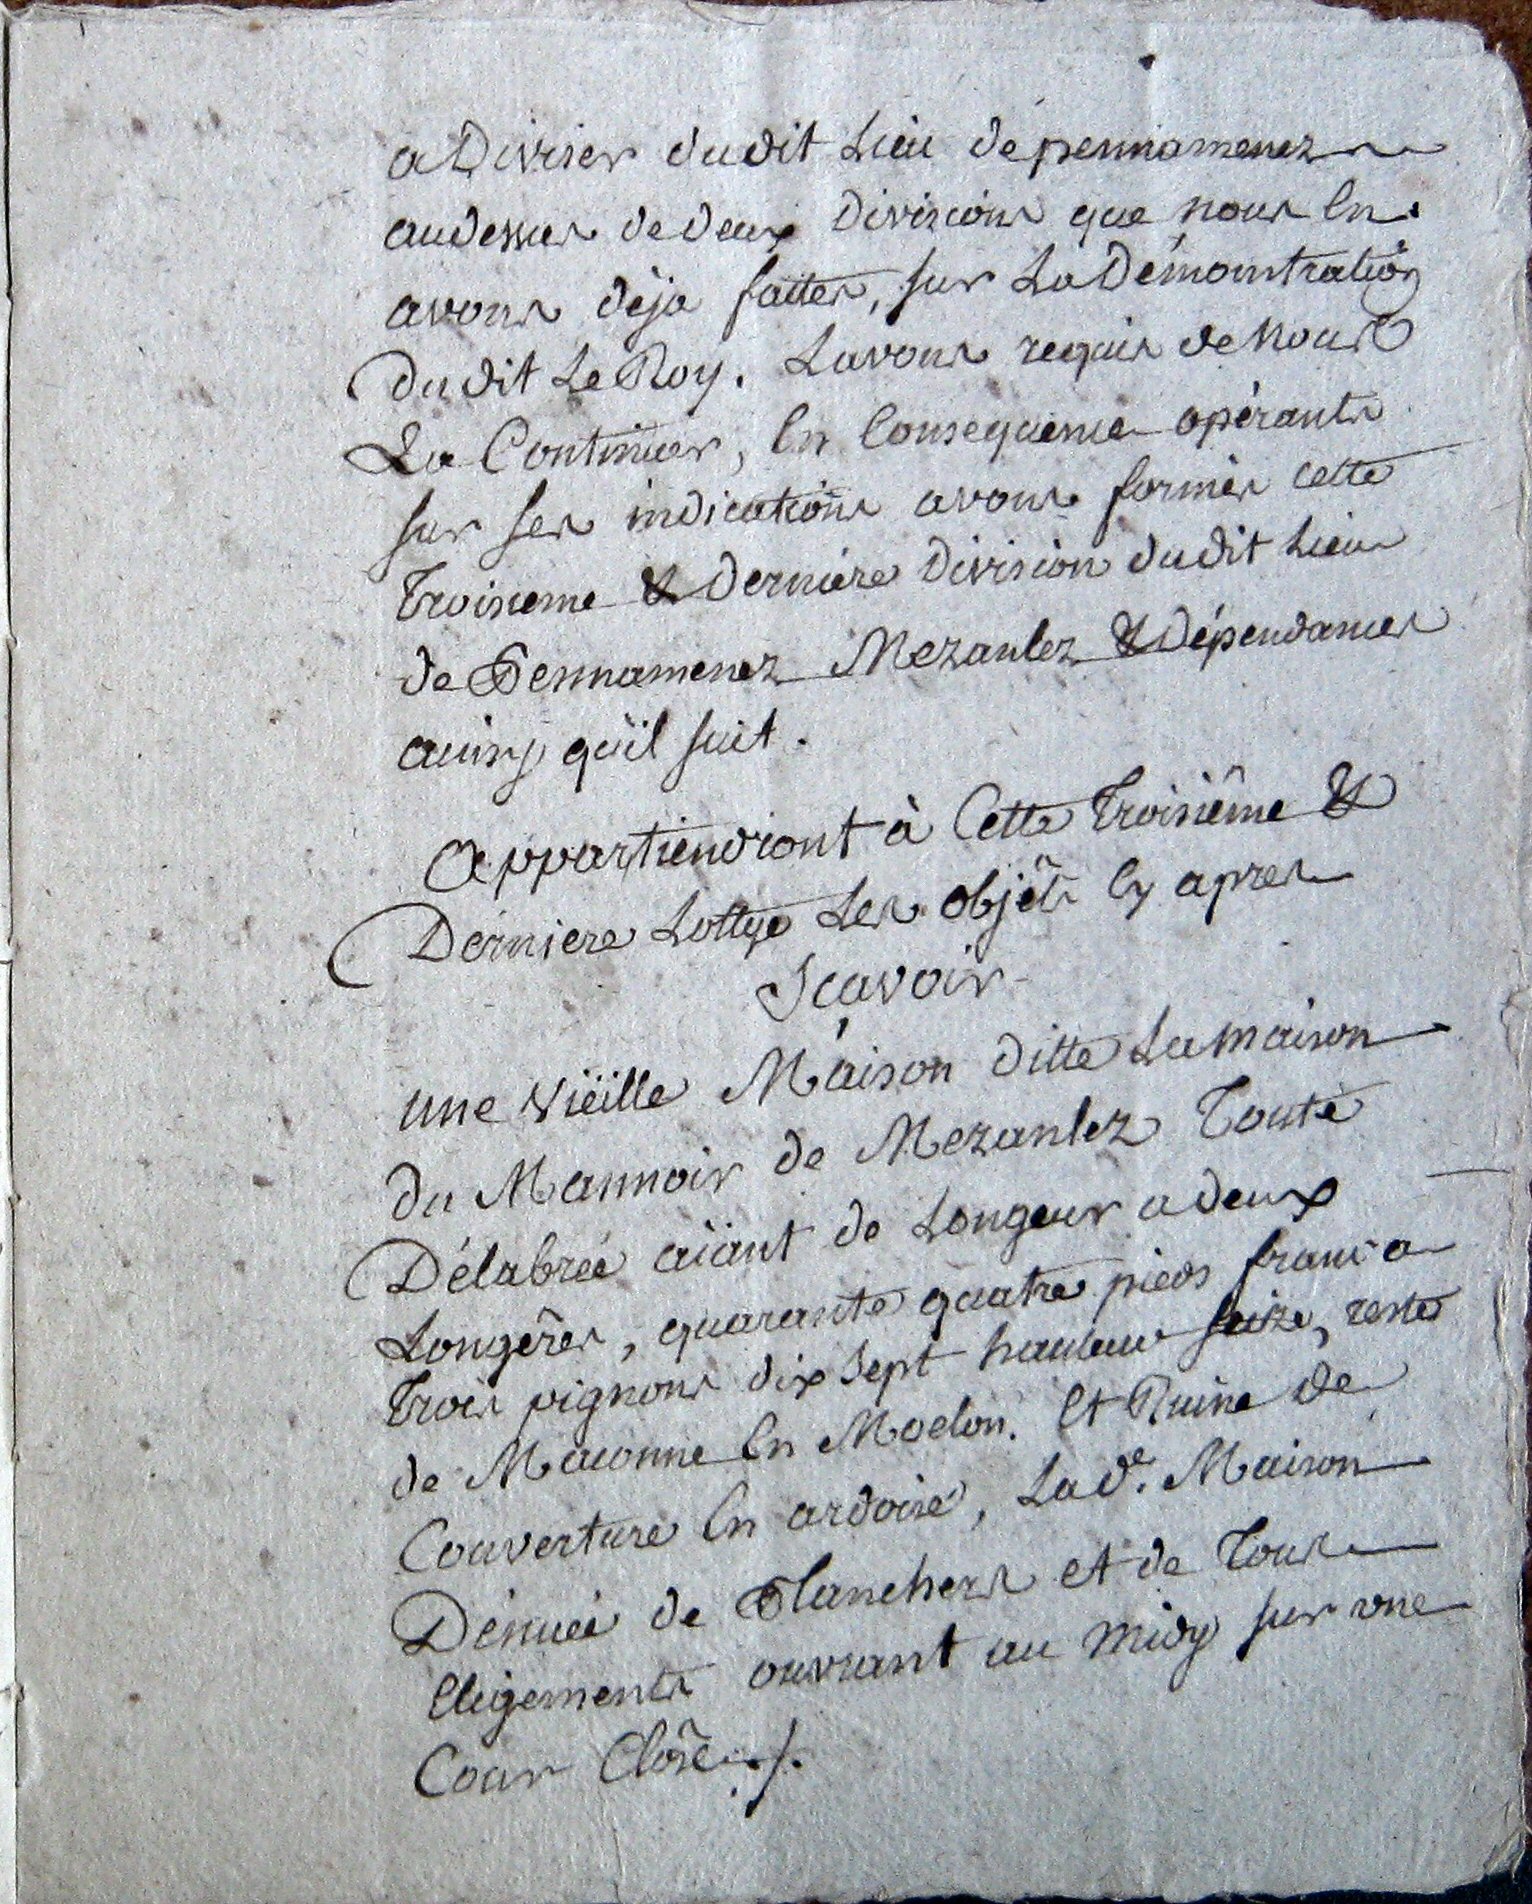 a Diviser dudit Lieu de pennamenez
audessus de deux Divisions que nous En
avons déja faites, sur La Démonstration
Dudit Le Roy. Lavons requis de nous
La Continuer, En Consequence opérants
sur ses indications avons formés cette
Troisieme & Derniere Division dudit Lieu
de Pennamenez Mezanlez & Dépendances
ainsy qu'il suit.
Appartiendront à Cette Troisiême &
Derniere Lottye Les objêts Cy apres
Scavoir
une viëille Maison ditte La maison
du Mannoir de Mezanlez Toute
Délabrée aïant de Longeur a deux
Longêres, quarante quatre pieds franc a
Trois pignons dix sept hauteur saize, reste
de Maconne En Moelon. Et Ruine de
Couverture En ardoise, Lad.e Maison
Dénuée de Planchers et de Tous
Eligements ouvrant au midy sur une
Cour Clôse ./.